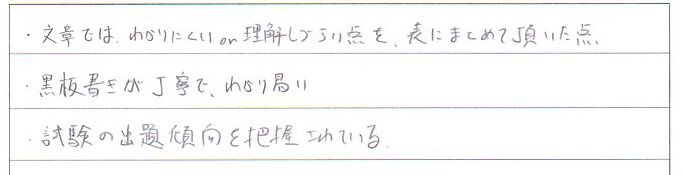 ・文章では、わかりにくいor理解しづらい点を、表にまとめて頂いた点、
・黒板書きが丁寧で、わかり易い
・試験の出題傾向を把握されている。